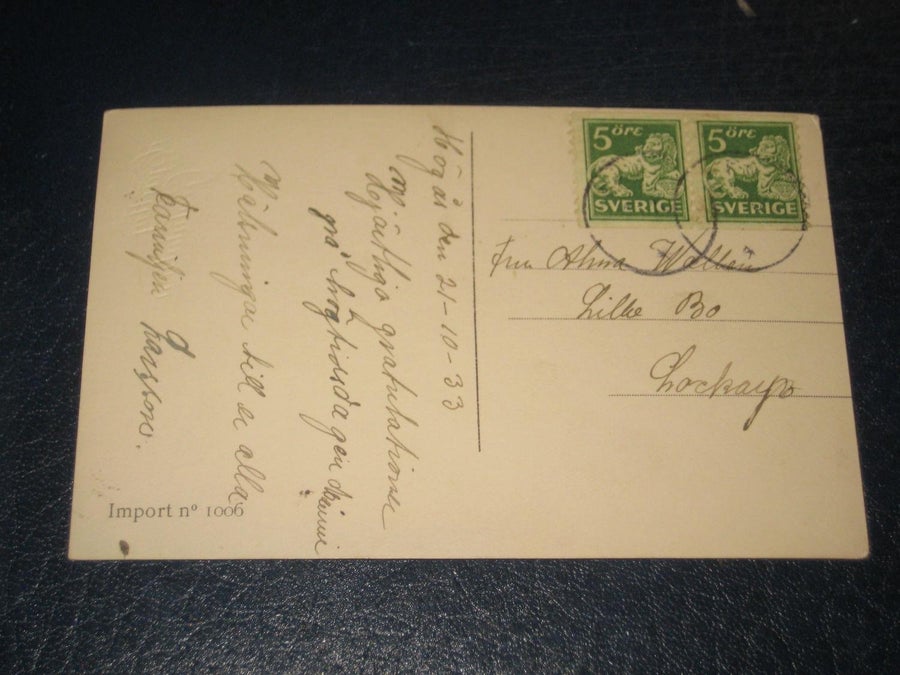 5 ÖRE
SVERIGE
5 ÖRE
SVERIGE
Fru Alma Wallén
Lille Bo
Lockaryp
Högås den 21-10-33
Mina
Hjärtliga gratulationer
på högtidsdagen
Hälsningar till er alla
Familjen Larsson.
Import nº 1006